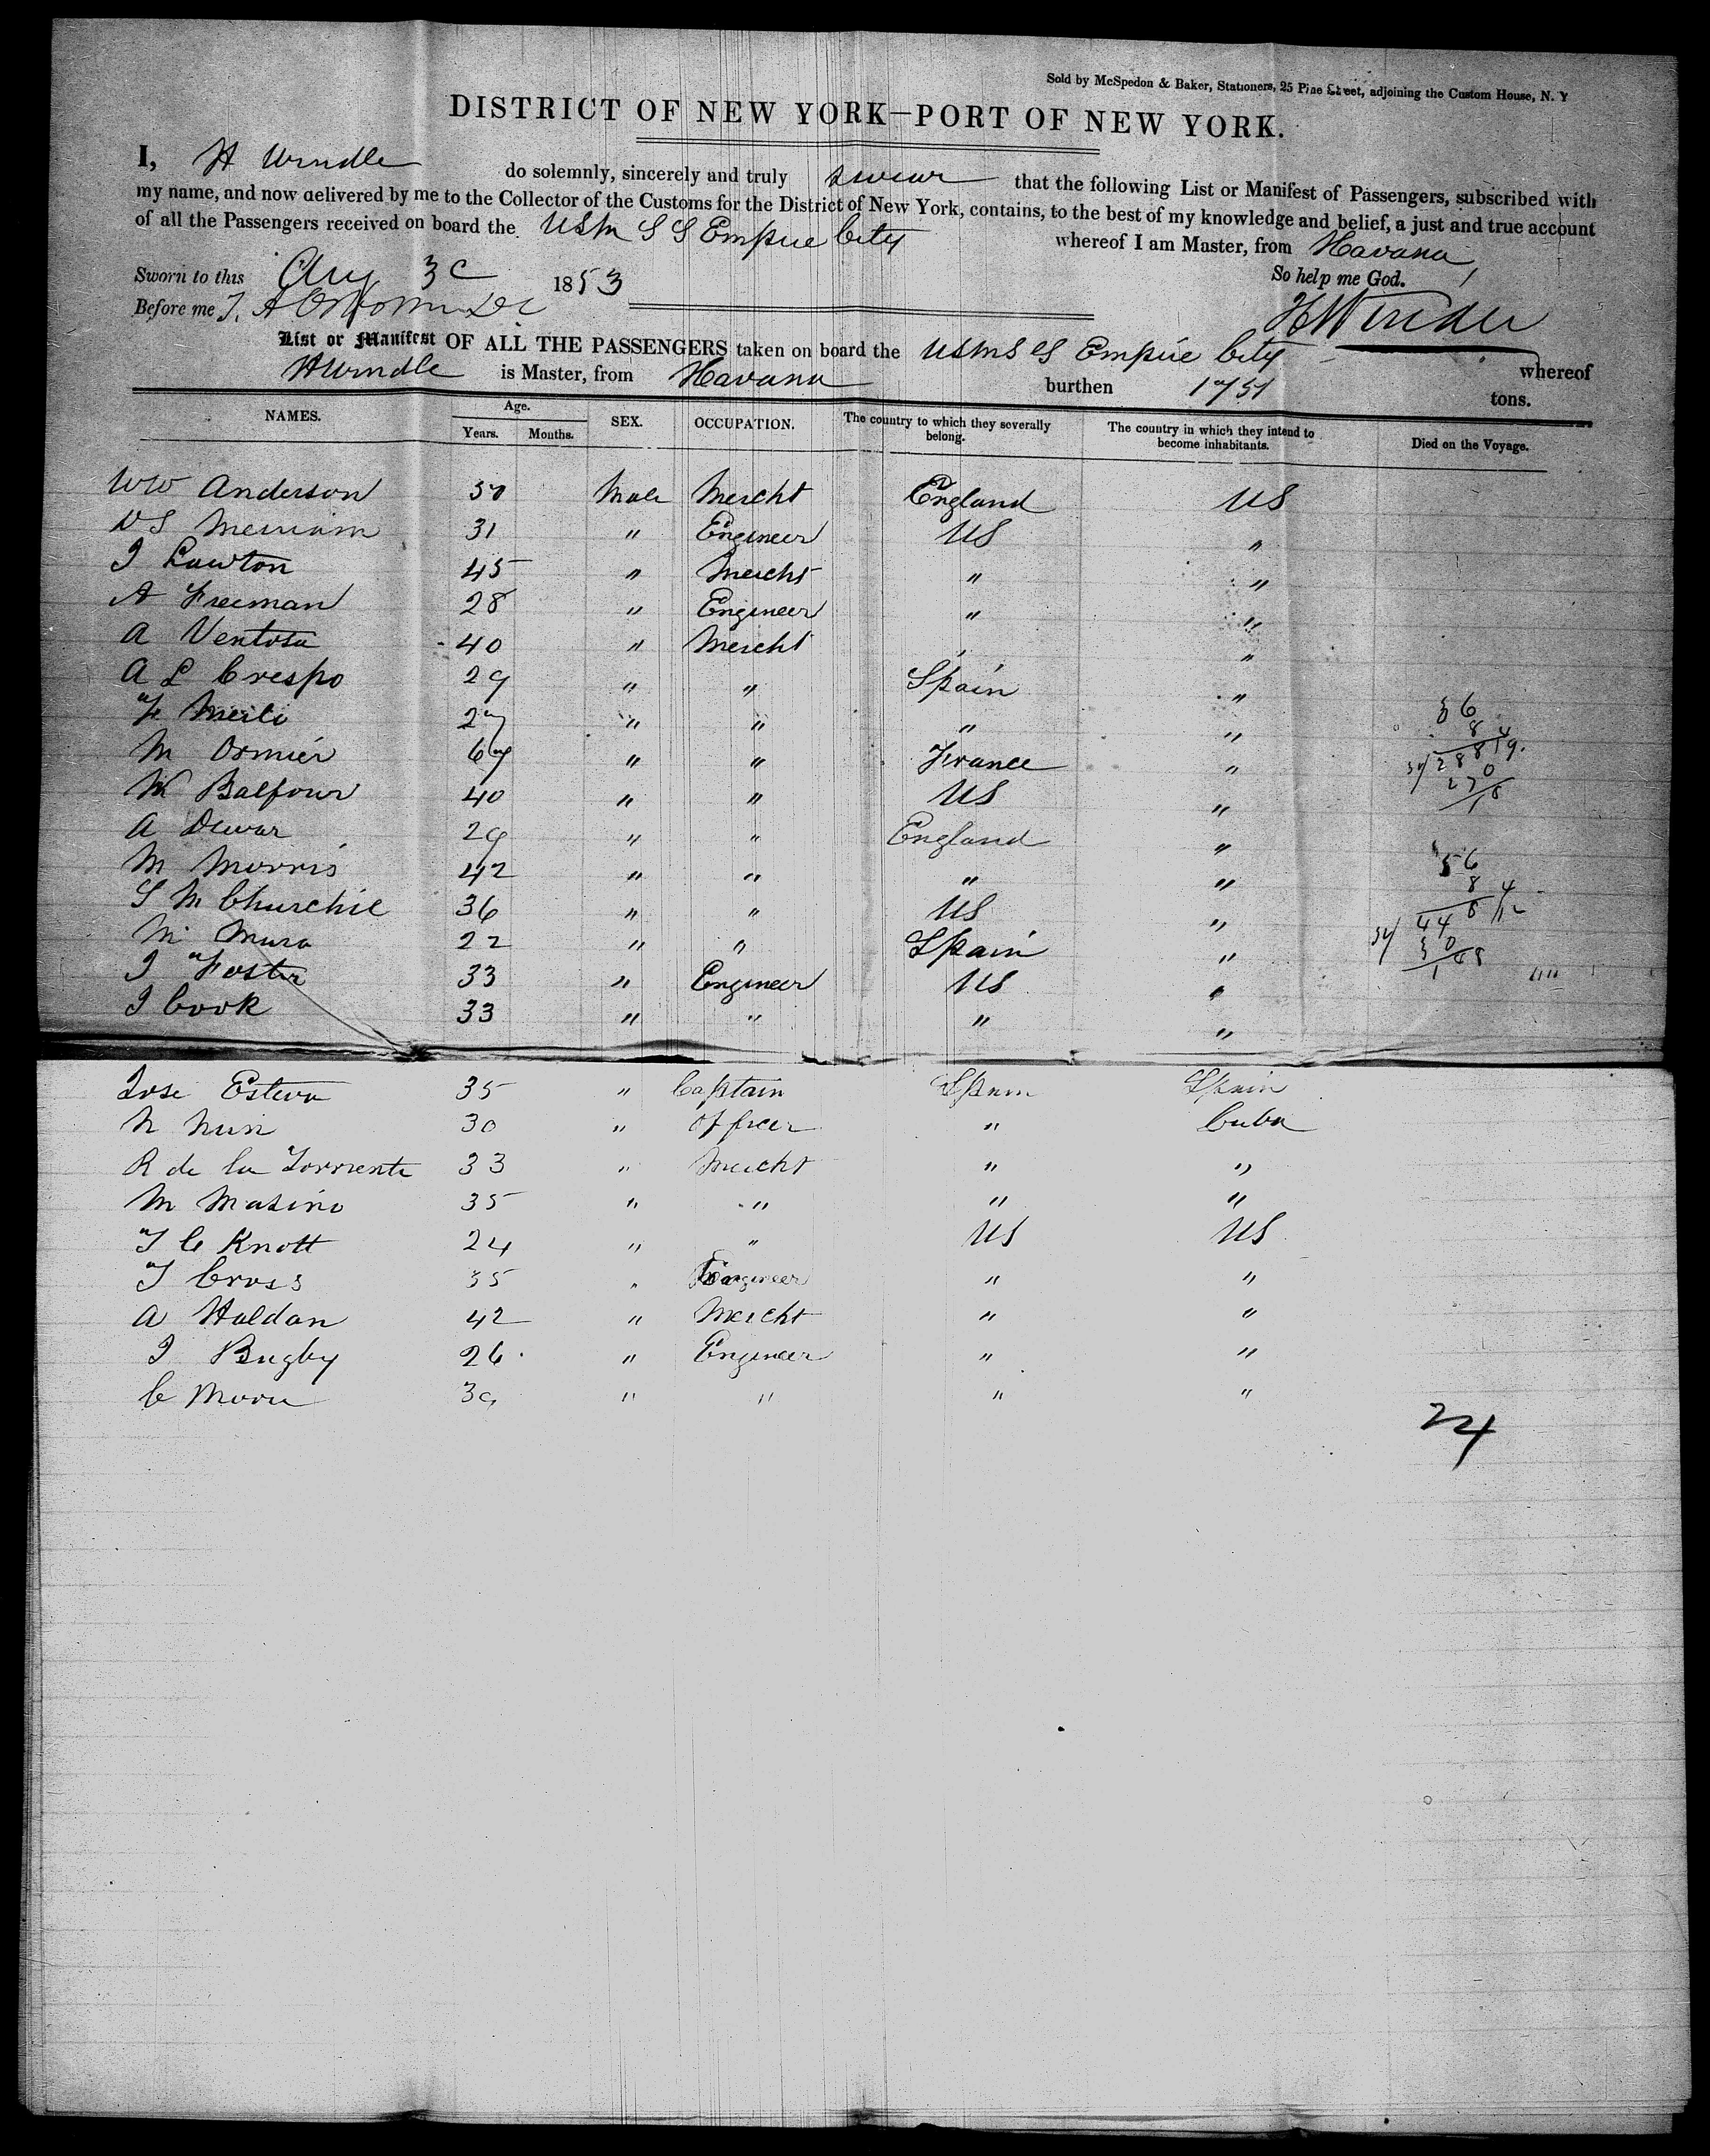 Sold by McSpedon & Baker, Stationers, 25 Pine Street, adjoining the Custom House, N. Y
DISTRICT OF NEW YORK—PORT OF NEW YORK.
I, H Windle do solemnly, sincerely and truly swear that the following List or Manifest of Passengers, subscribed with
my name, and now delivered by me to the Collector of the Customs for the District of New York, contains, to the best of my knowledge and belief, a just and true account
of all the Passengers received on board the USM S S Empire City whereof I am Master, from Havana
So help me God.
Sworn to this Aug 30 1853
Before me
H Windle
List or Manifest OF ALL THE PASSENGERS taken on board the USMS S Empire City whereof
H Windle is Master, from Havana burthen 1751 tons.
NAMES. Age. Years. Months. SEX. OCCUPATION. The country to which they severally belong. The country in which they intend to become inhabitants. Died on the Voyage.
WW Anderson 30 Male Mercht England US
Merriam 31 " Engineer US "
J Lawton 45 " Mercht " "
A Freeman 28 " Engineer " "
A Ventosa 40 " Mercht " "
A L Crespo 29 " " Spain "
F Merlo 27 " " " "
M Ormier 67 " " France "
W Balfour 40 " " US "
A Dewar 29 " " England "
M Morris 42 " " " "
S M Churchil 36 " " US "
M Mura 22 " " Spain "
J Foster 33 " Engineer US "
J Cook 33 " " " "
Jose Esteva 35 " Captain Spain Spain
N Nun 30 " Officer " Cuba
R de la Torriente 33 " Mercht " "
M Masino 35 " " " "
T C Knott 24 " " US US
T Cross 35 " Engineer " "
A Haldan 42 " Mercht " "
J Bugby 26 " Engineer " "
C Moore 39 " " " "
24